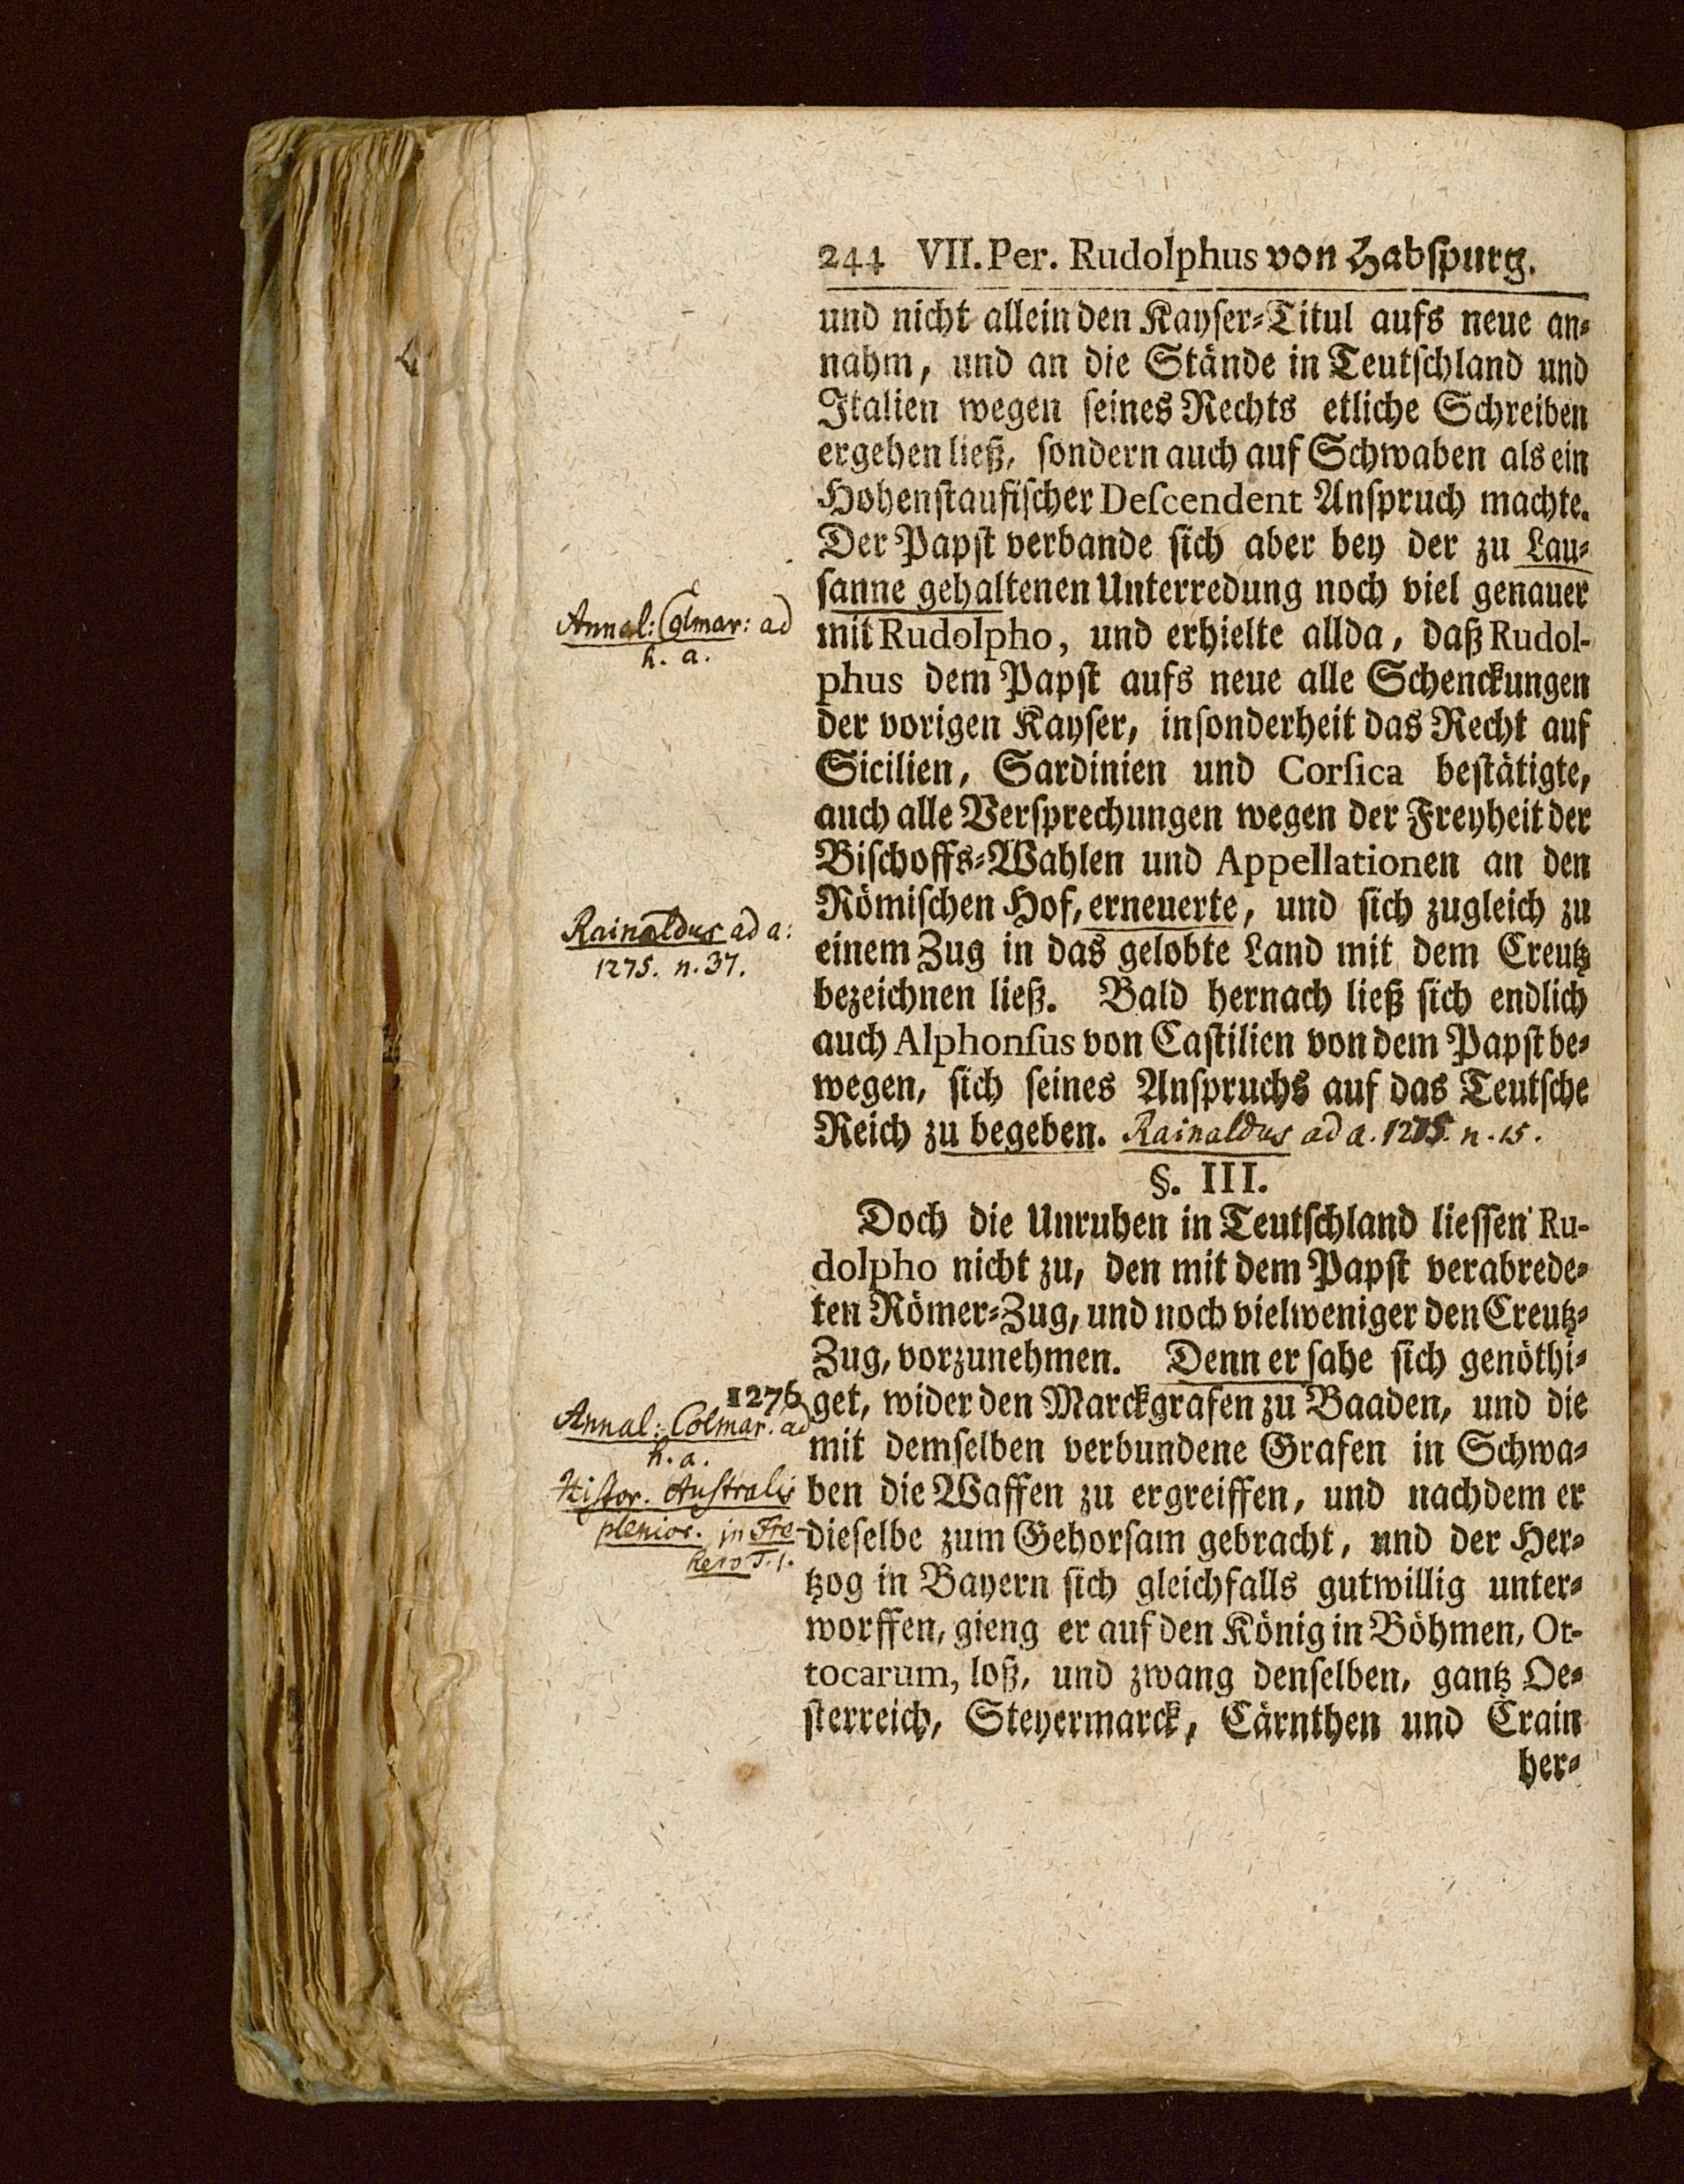 244 VII. Per. Rudolphus von Habspurg.
und nicht allein den Kayser-Titul aufs neue an-
nahm, und an die Stände in Teutschland und
Italien wegen seines Rechts etliche Schreiben
ergehen ließ, sondern auch auf Schwaben als ein
Hohenstaufischer Descendent Anspruch machte.
Der Papst verbande sich aber bey der zu Lau-
sanne gehaltenen Unterredung noch viel genauer
Annal: Colmar: ad
h. a.
mit Rudolpho, und erhielte allda, daß Rudol-
phus dem Papst aufs neue alle Schenckungen
der vorigen Kayser, insonderheit das Recht auf
Sicilien, Sardinien und Corsica bestätigte,
auch alle Versprechungen wegen der Freyheit der
Bischoffs-Wahlen und Appellationen an den
Römischen Hof, erneuerte, und sich zugleich zu
Rainaldus ad a:
1275. n. 37.
einem Zug in das gelobte Land mit dem Creutz
bezeichnen ließ. Bald hernach ließ sich endlich
auch Alphonsus von Castilien von dem Papst be-
wegen, sich seines Anspruchs auf das Teutsche
Reich zu begeben. Rainaldus ad a. 1275. n. 15.
§. III.
Doch die Unruhen in Teutschland liessen Ru-
dolpho nicht zu, den mit dem Papst verabrede-
ten Römer-Zug, und noch vielweniger den Creutz-
Zug, vorzunehmen. Denn er sahe sich genöthi-
1276
get, wider den Marckgrafen zu Baaden, und die
Annal: Colmar. ad
h. a.
mit demselben verbundene Grafen in Schwa-
Histor. Australis
plenior. in Fre-
hero T. 1.
ben die Waffen zu ergreiffen, und nachdem er
dieselbe zum Gehorsam gebracht, und der Her-
tzog in Bayern sich gleichfalls gutwillig unter-
worffen, gieng er auf den König in Böhmen, Ot-
tocarum, loß, und zwang denselben, gantz Oe-
sterreich, Steyermarck, Cärnthen und Crain
her-